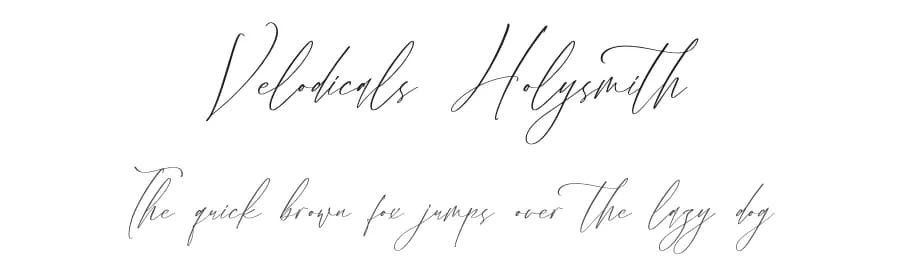 Velodicals Holysmith
The quick brown fox jumps over the lazy dog